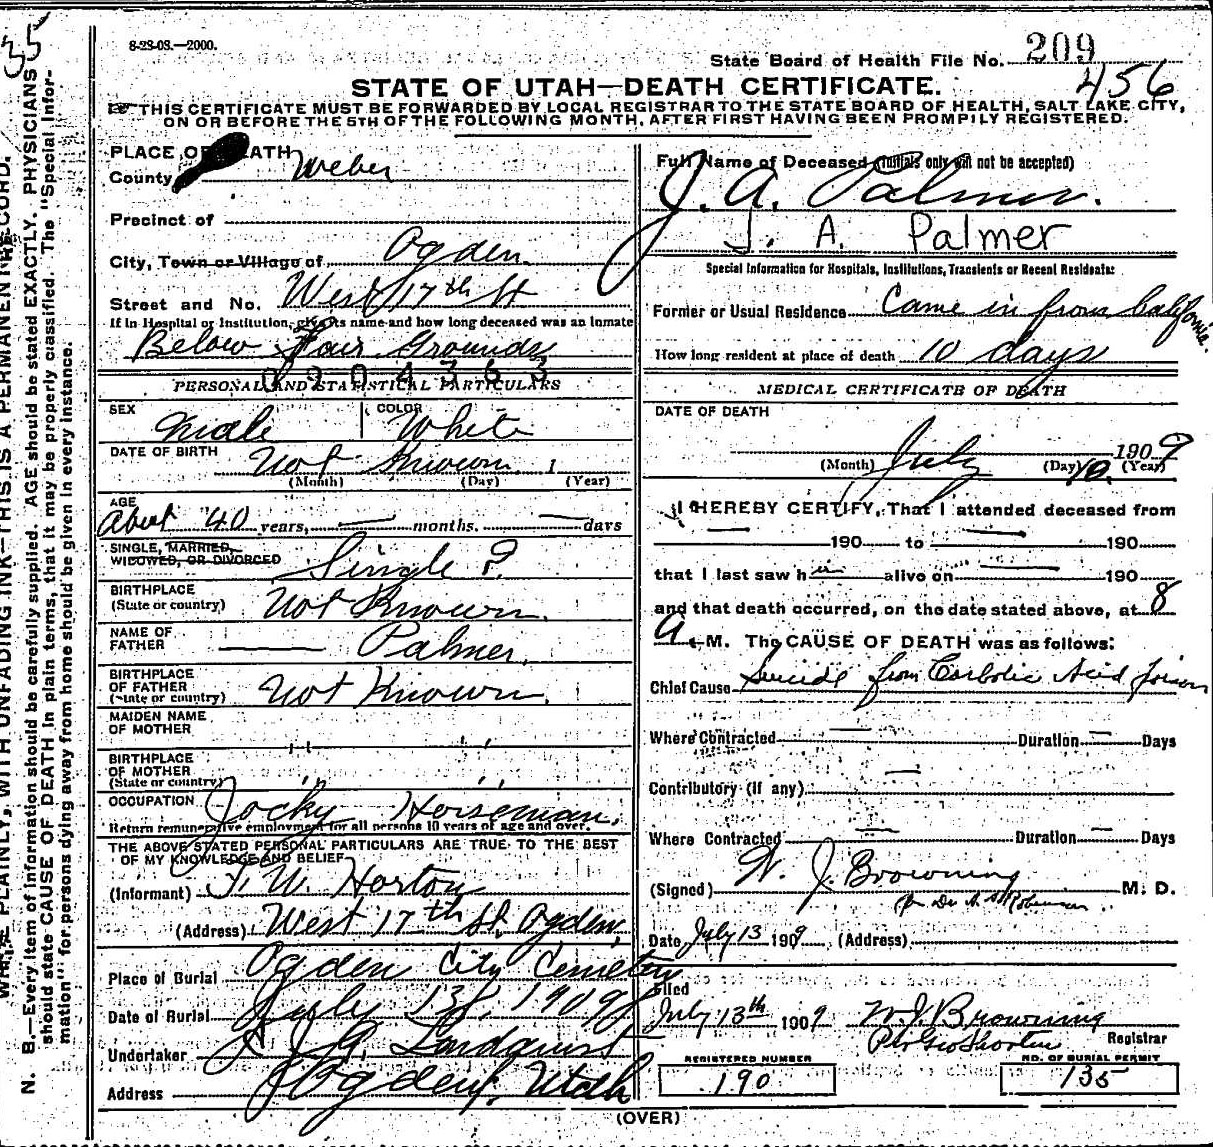 35
8-28-08.—2000.
State Board of Health File No. 209
456
STATE OF UTAH—DEATH CERTIFICATE.
☞ THIS CERTIFICATE MUST BE FORWARDED BY LOCAL REGISTRAR TO THE STATE BOARD OF HEALTH, SALT LAKE CITY,
ON OR BEFORE THE 5TH OF THE FOLLOWING MONTH, AFTER FIRST HAVING BEEN PROMPILY REGISTERED.
PLACE OF DEATH
County Weber
Precinct of
City, Town or Village of Ogden
Street and No. West 17th St
If in Hospital or Institution, give its name and how long deceased was an inmate
Below Fair Grounds
0204363
PERSONAL AND STATISTICAL PARTICULARS
SEX Male COLOR White
DATE OF BIRTH Not Known
(Month) (Day) (Year)
AGE About 40 years, — months. — days
SINGLE, MARRIED,
WIDOWED, OR DIVORCED Single ?
BIRTHPLACE
(State or country) Not Known.
NAME OF
FATHER — Palmer.
BIRTHPLACE
OF FATHER
(State or country) Not Known.
MAIDEN NAME
OF MOTHER " "
BIRTHPLACE
OF MOTHER
(State or country) " "
OCCUPATION Jocky Horseman.
Return remunerative employment for all persons 10 years of age and over.
THE ABOVE STATED PERSONAL PARTICULARS ARE TRUE TO THE BEST
OF MY KNOWLEDGE AND BELIEF
(Informant) T. W. Horton
(Address) West 17th St. Ogden,
Place of Burial Ogden City Cemetery
Date of Burial July 13, 1909
Undertaker Lindquist
Address Ogden, Utah
Full Name of Deceased (Initials only will not be accepted)
J. A. Palmer.
J. A. Palmer
Special Information for Hospitals, Institutions, Transients or Recent Residents:
Former or Usual Residence Came in from California.
How long resident at place of death 10 days
MEDICAL CERTIFICATE OF DEATH
DATE OF DEATH
July 10. 1909
(Month) (Day) (Year)
I HEREBY CERTIFY, That I attended deceased from
— 190 to — 190
that I last saw him alive on — 190
and that death occurred, on the date stated above, at 8
A. M. The CAUSE OF DEATH was as follows:
Chief Cause Suicide from Carbolic Acid Poison
Where Contracted — Duration — Days
Contributory (If any) —
Where Contracted — Duration — Days
(Signed) W. J. Browning M. D.
Date July 13 1909 (Address)
Filed
July 13th 1909 W. J. Browning
Registrar
REGISTERED NUMBER
190
NO. OF BURIAL PERMIT
135
(OVER)
WRITE PLAINLY, WITH UNFADING INK—THIS IS A PERMANENT RECORD.
N. B.—Every item of information should be carefully supplied. AGE should be stated EXACTLY. PHYSICIANS
should state CAUSE OF DEATH in plain terms, that it may be properly classified. The "Special Infor-
mation" for persons dying away from home should be given in every instance.